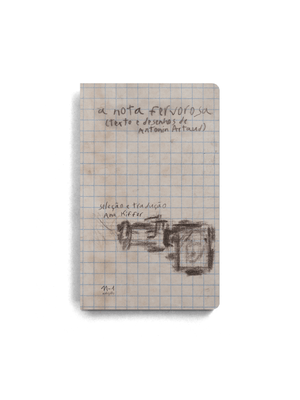 a nota fervorosa
(texto e desenhos de
Antonin Artaud)
seleção e tradução
Ana Kiffer
n-1